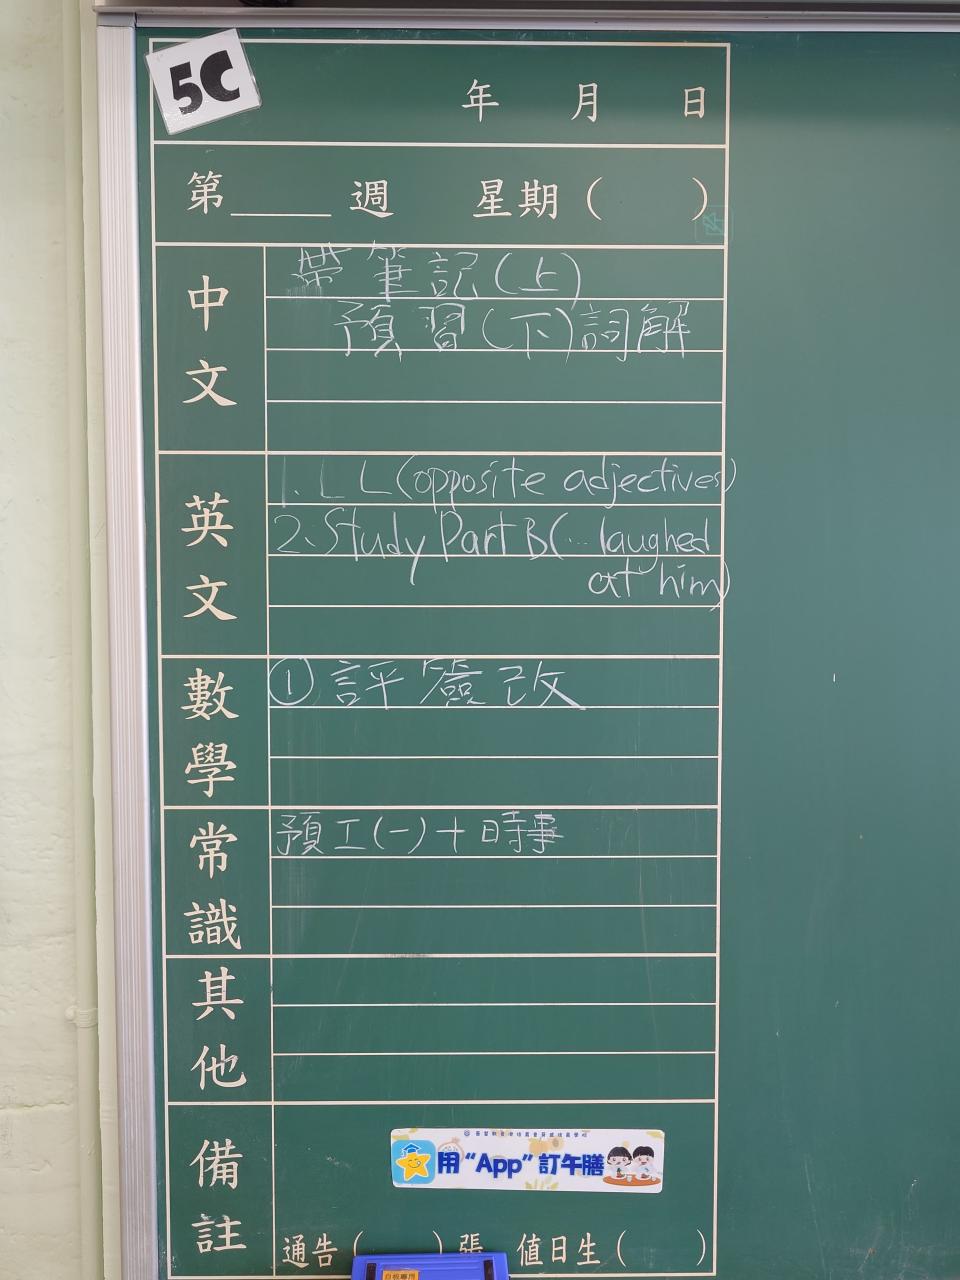 5C
年 月 日
第____週 星期( )
中文
帶筆記(上)
預習(下)詞解
英文
1. LL(opposite adjectives)
2. Study Part B(... laughed
at him)
數學
① 評簽改
常識
預工(一)+時事
其他
備註
用“App”訂午膳
通告( )張 值日生( )
白板專用